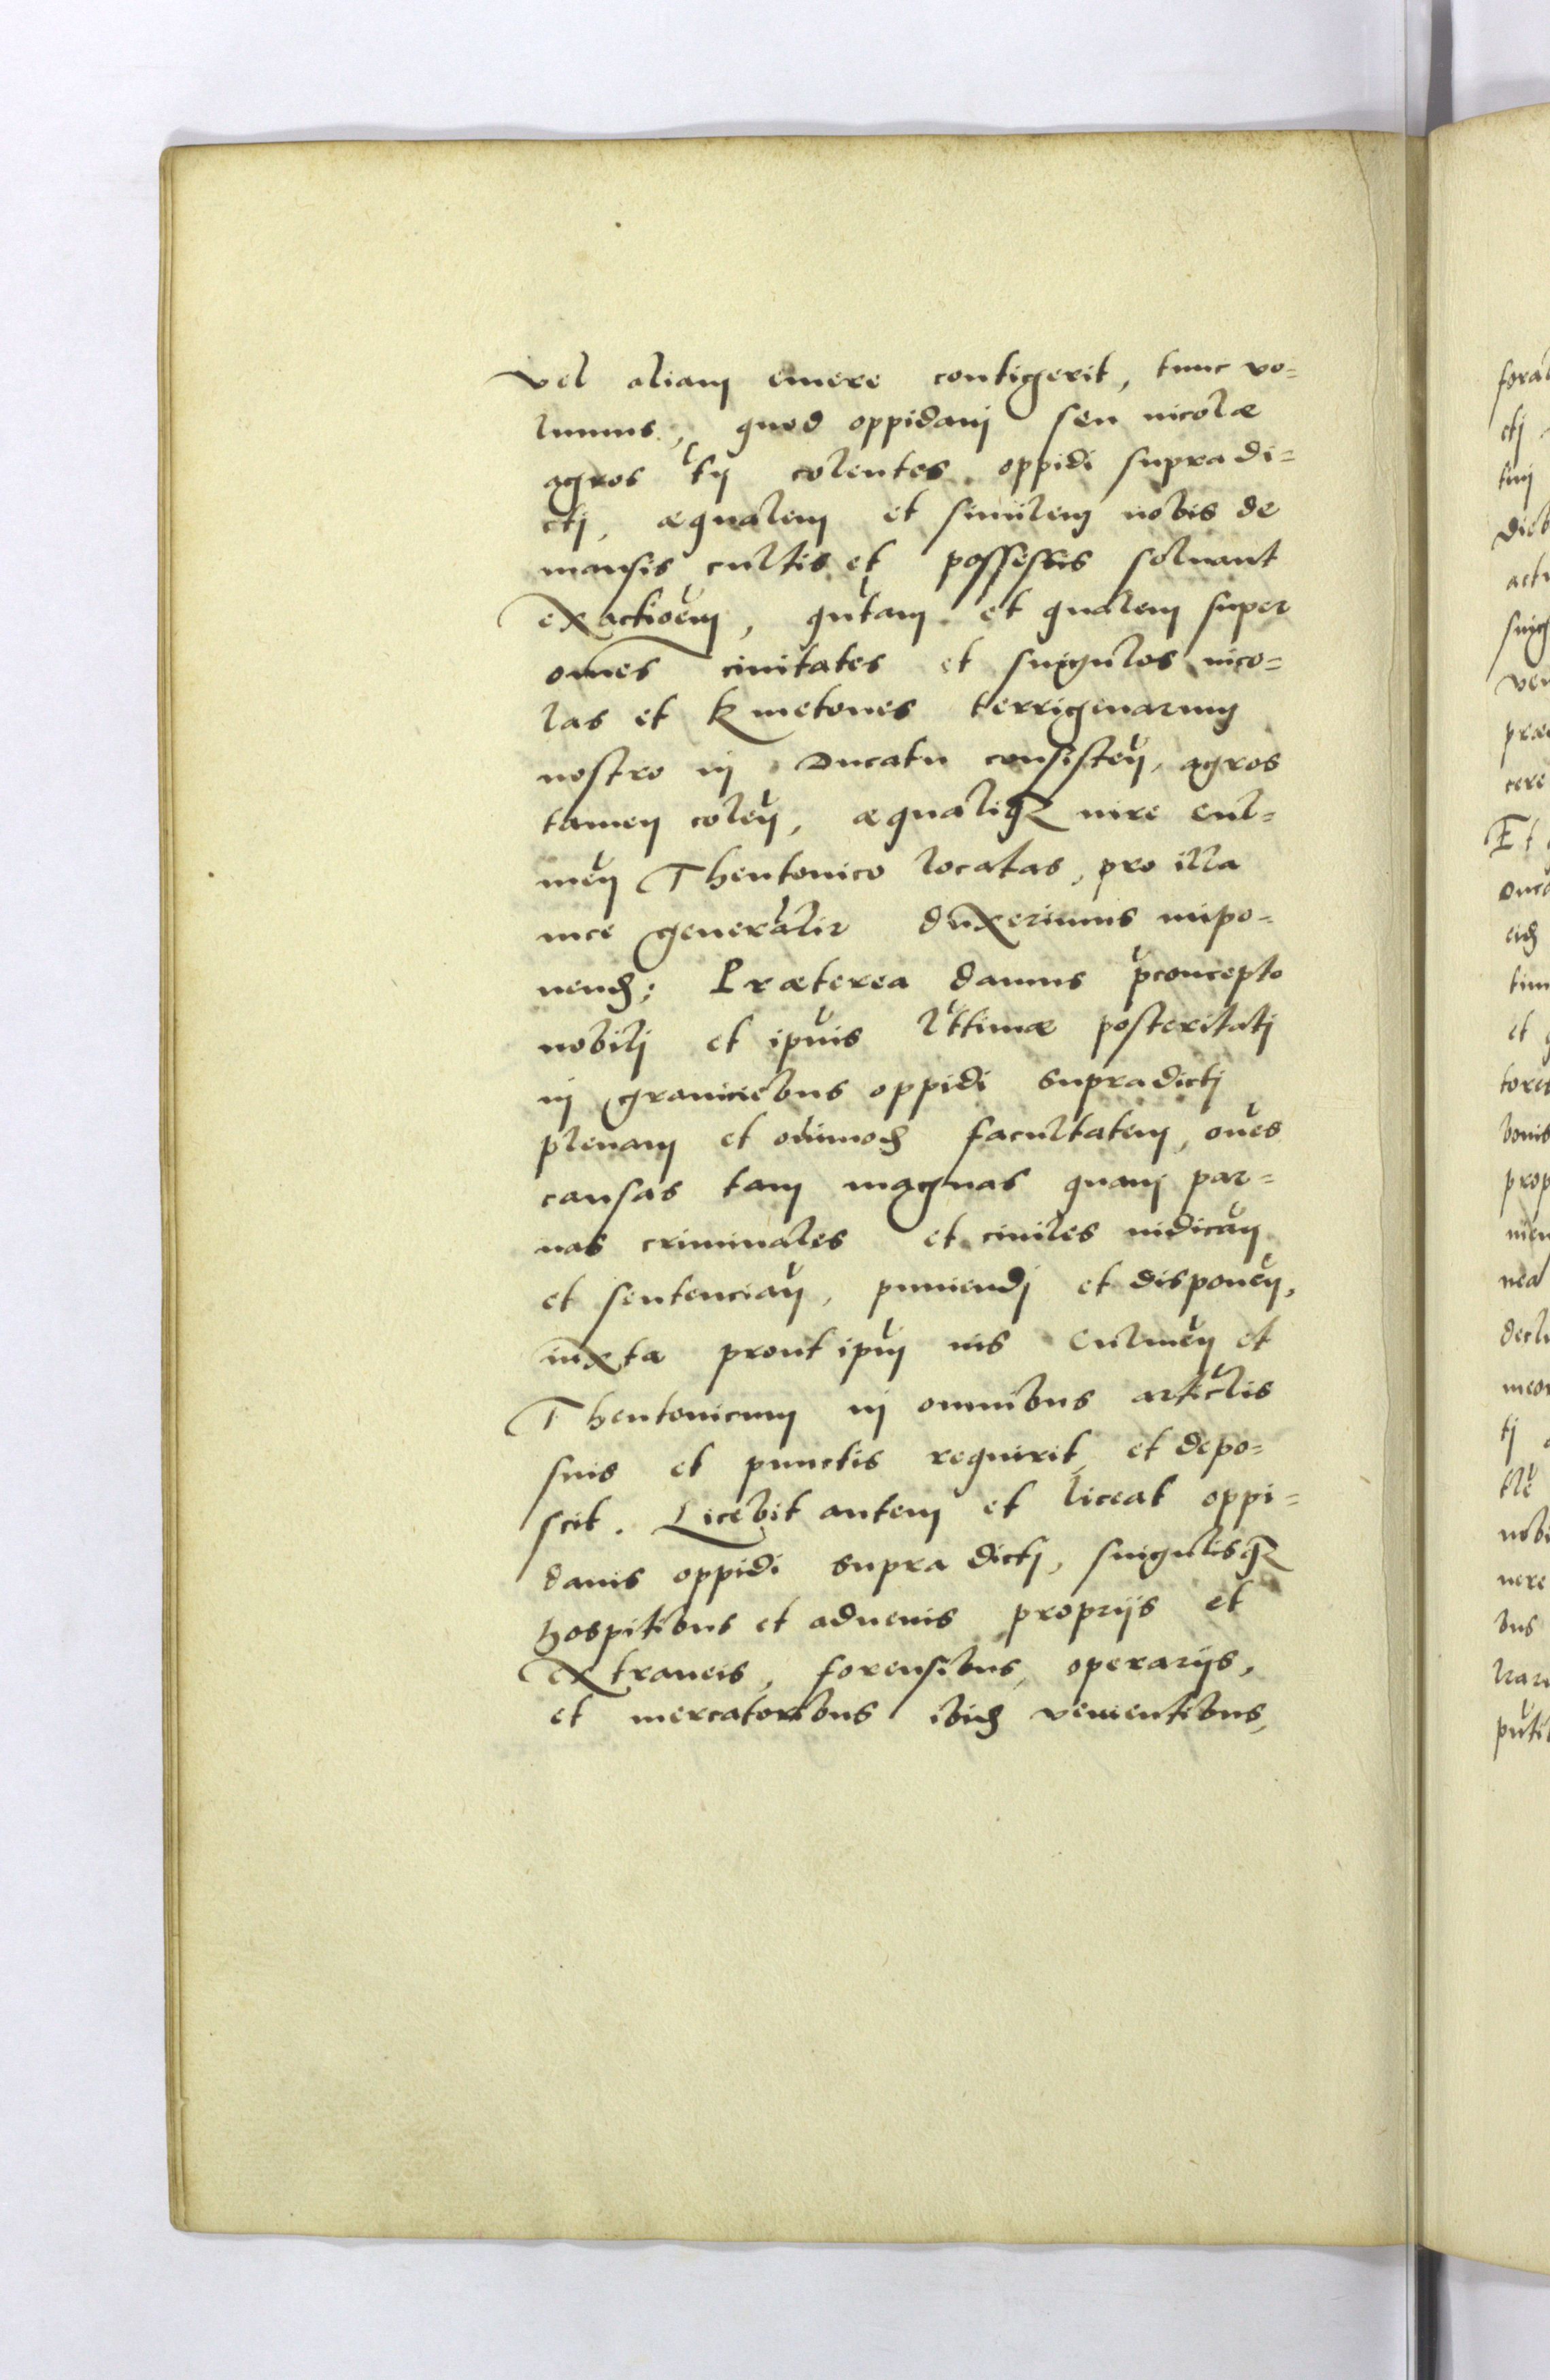 vel aliam emere contigerit, tunc vo=
lumus, quod oppidani seu incolæ
agros tn̄ colentes oppidi supradi=
cti, æqualem et similem nobis de
mansis cultis et possessis soluant
exactioēm, qūtam et qualem super
om̄es ciuitates et singulos inco=
las et Kmetones terrigenarum
nostro in Ducatu consisteñ, agros
tamen coleñ, æqualiq₃ iure Cul=
meñ Theutonico locatas, pro illa
vice generālir duxerimus impo=
nend; Præterea damus p̄concepto
nobili et ip̄ius l̄ttimæ posteritati
in graniciebus oppidi supradicti
plenam et om̄imod facultatem, om̄es
causas tam magnas quam par=
uas criminales et ciuiles iudicañ
et sentenciañ, puniendi et disponeñ,
iuxta prout ip̄m ius Culmeñ et
Theutonicum in omnibus articl̄is
suis et punctis requirit et depo=
scit. Licebit autem et liceat oppi=
danis oppidi supra dicti, singulisq₃
hospitibus et aduenis proprijs et
extraneis, forensibus, operarijs,
et mercatoribus ibid venientibus,
foral
cti
tim
dieb
actu
sing
ven
præ
cere
Et
Duca
eid
tim
et
tores
bonis
prop
nien
nea
decl
meor
ti
tlē
nobi
nere
bus
trar
putil